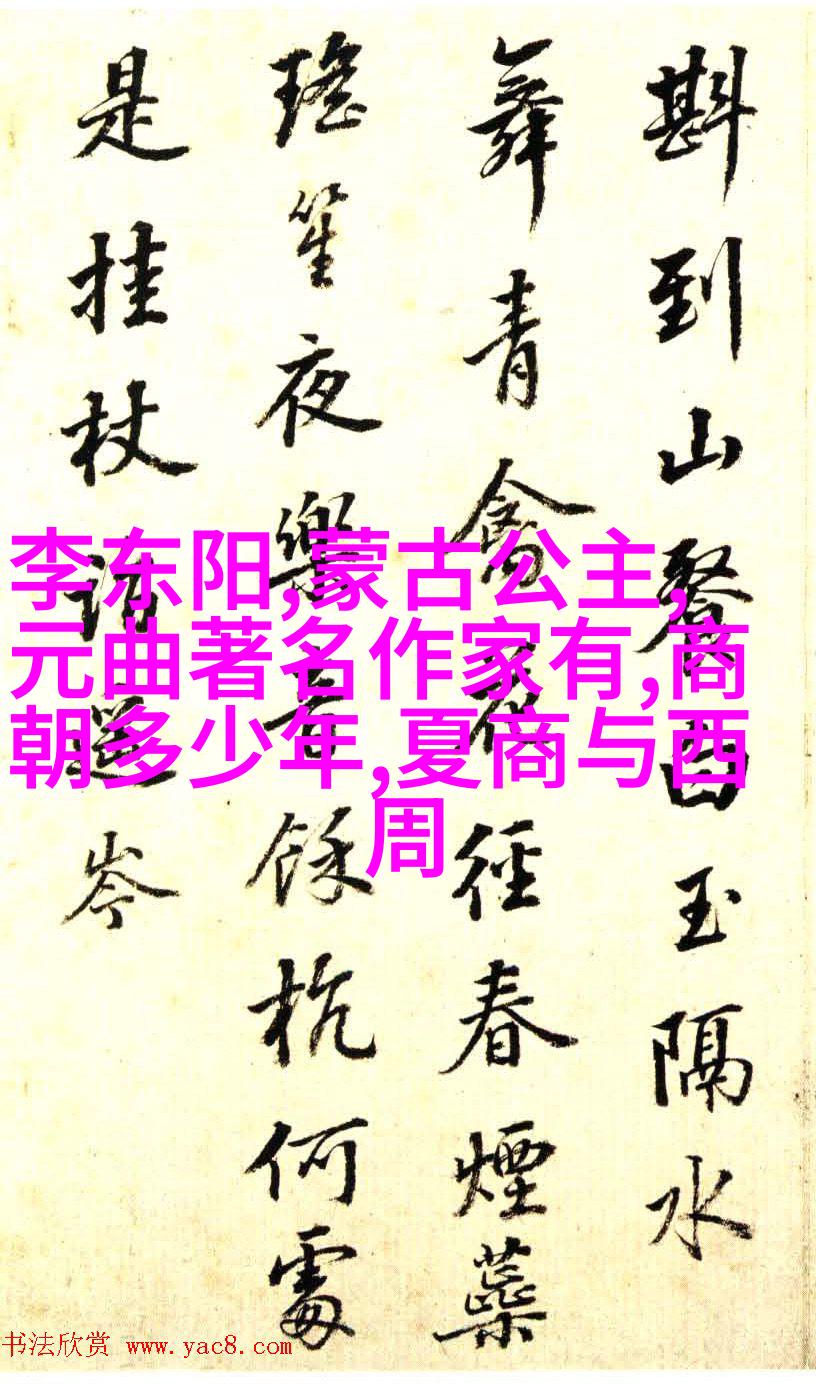 斟到山玉隔水
舞青禽徑春煙蘂
瑤笙夜樂餘杭何處
是挂杖岑
李东阳,蒙古公主,
元曲著名作家有,商
朝多少年,夏商与西
周
书法欣赏 www.yac8.com